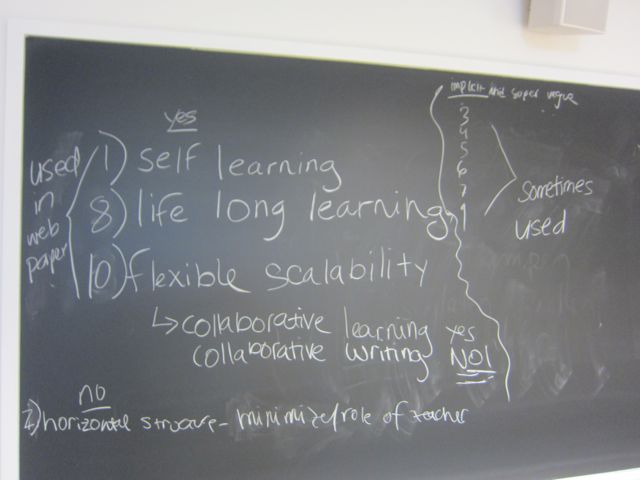 yes
used in web paper
1) self learning
8) life long learning
10) flexible scalability
↳ collaborative learning yes
collaborative writing NO!
no
2) horizontal strucure - minimize/role of teacher
implicit and super vague
3
4
5
6
7
9
sometimes
used